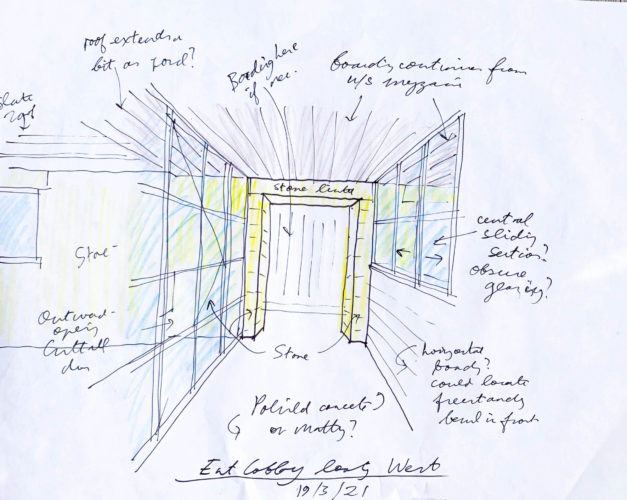 roof extends a
bit as ford?
Boarding here
if nec.
Boarding continues from
u/s mezzanin
slate
roof
stone lintel
central
sliding
section?
obscure
glazing?
Stone
Outward-
opening
full tall
doors
Stone
horizontal
boards?
could locate
freestandg
bench in front
Polished concrete?
or matting?
East Lobby looking West
19/3/21